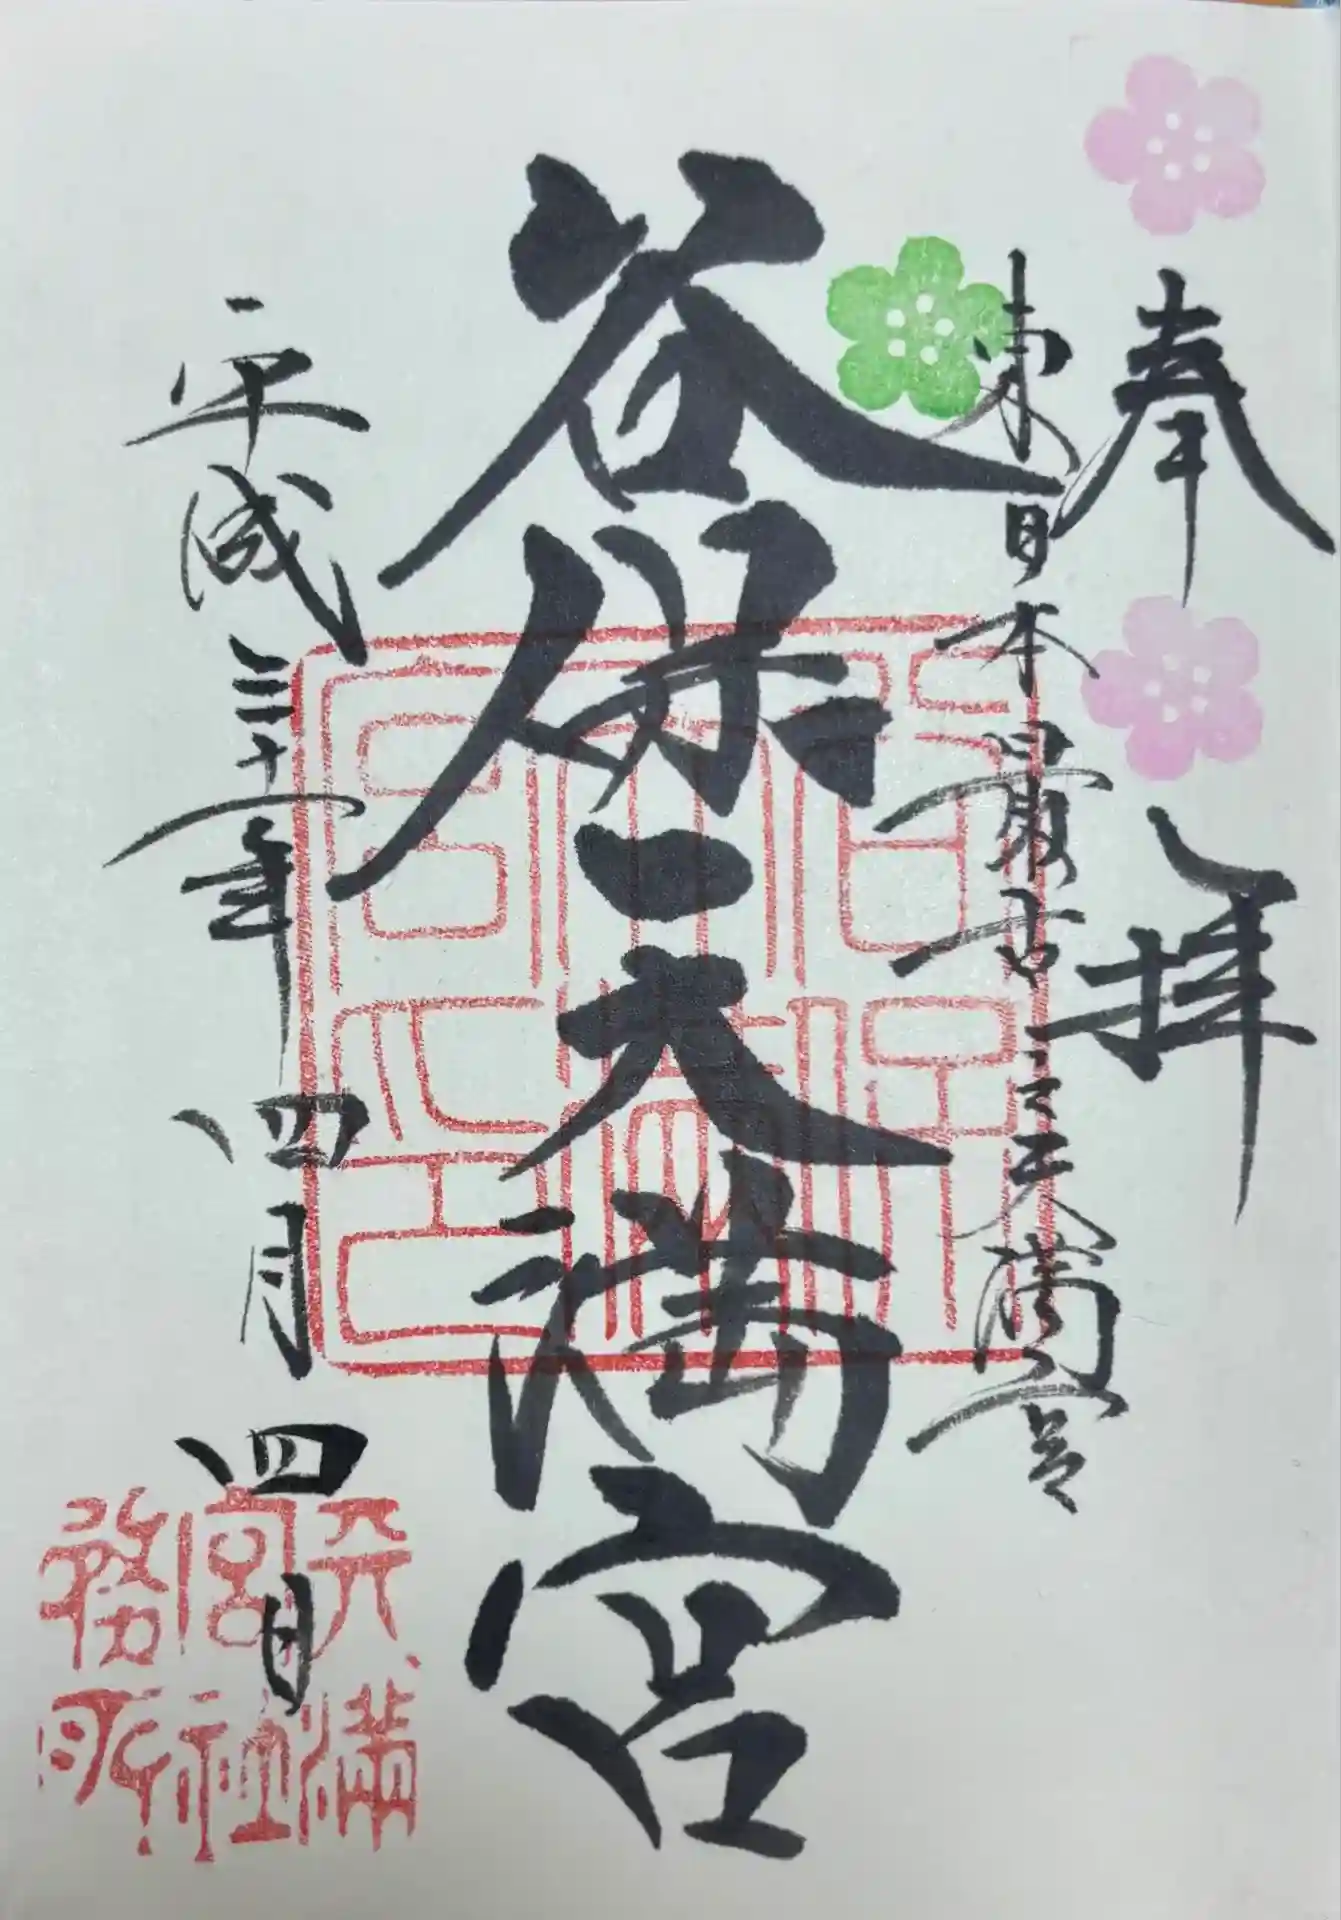 奉拝
東日本最古天満宮
谷保天満宮
平成三十一年四月四日
天満
宮社
務所